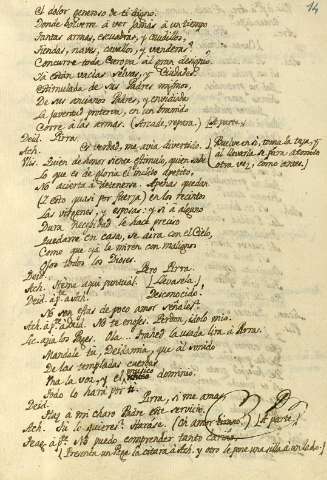 14
El dolor generoso de ti digno.
Donde bolveré à ver jamás à un tiempo
Tantas armas, escuadras, y caudillos,
Tiendas, naves, cavallos, y vanderas?
Concurre toda Europa al gran designio.
Ya están vacías selvas, y Ciudades.
Estimulada de sus Padres mismos,
De sus ancianos Padres, y envidiada
La juventud proterva, en un bramido
Corre à las armas. (Arcade, repara.) (A parte.)
Deid. Pirra.
Ach. Es verdad, me avia divertido. (Buelve en sí, toma la taza, y al llevarla se para atonito otra vez, como antes.)
Ulis. Quien de honor siente estimulo, quien sabe
Lo que es de gloria el inclito apetito,
No acierta à detenerse. Apenas quedan
(Y esto quasi por fuerza) en los recintos
Las virgenes, y esposas: y si à alguno
Dura necesidad le hace preciso
Quedarse en casa, se aira con el Cielo,
Como que ya le miren con malignos
Ojos todos los Dioses.
Deid. Pero Pirra.
Ach. Heme aqui pontual. (Llevasela.)
Deid. à pte. à Ach. Desconocido,
No son estas de poco amor señales?
Ach. à pte. à Deid. No te enojes. Perdon, idolo mio.
Lic. Ola... Trahed la usada lira à Pirra.
Mandale tu, Deidamia, que al sonido
De las templadas cuerdas
Una la voz, y el maestrico dominio.
Todo lo hará por ti.
Deid. Pirra, si me amas
Haz à mi charo Padre este servicio.
Ach. Si lo quieres? Harase. (Oh amor tirano.) (A parte.)
Tea. à pte. No puedo emprender tanto cariño.
(Presenta un Page la citara à Ach. y otro le pone una silla à un lado.)